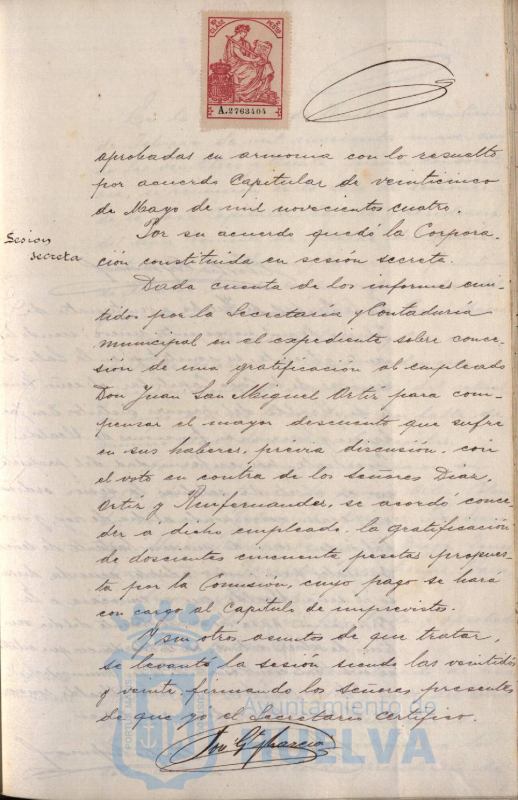 CLASE
PESETA
A.2763404
aprobadas en armonia con lo resuelto
por acuerdo Capitular de veinticinco
de Mayo de mil novecientos cuatro.
Por su acuerdo quedó la Corpora-
Sesion
secreta
ción constituida en sesión secreta.
Dada cuenta de los informes emi-
tidos por la Secretaría y Contaduría
municipal en el expediente sobre conce-
sión de una gratificación al empleado
Don Juan San Miguel Ortiz para com-
pensar el mayor descuento que sufre
en sus haberes, previa discusión, con
el voto en contra de los señores Diaz,
Ortiz y, se acordó conce-
der á dicho empleado la gratificación
de doscientos cincuenta pesetas propues-
ta por la Comisión, cuyo pago se hará
con cargo al Capitulo de imprevistos.
Y sin otros asuntos de que tratar,
se levantó la sesión siendo las veintidós
y veinte, firmando los señores presentes
de que yo el Secretario certifico.
Ayuntamiento de
HUELVA